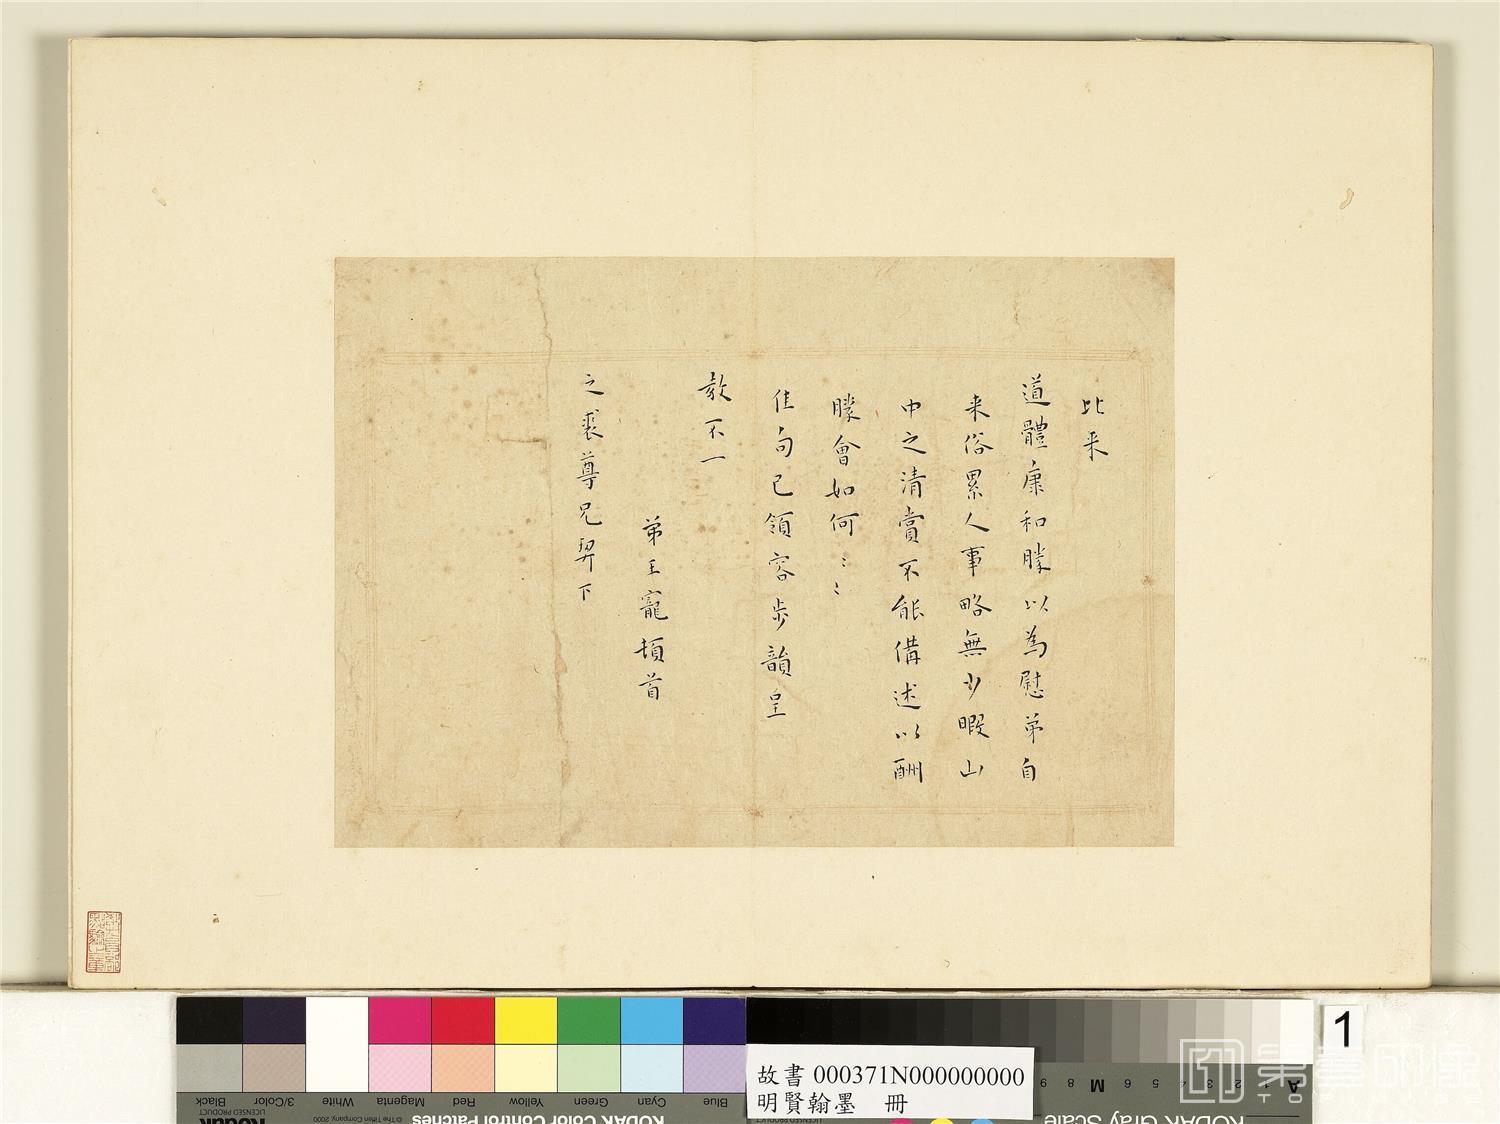 比来
道體康和勝以為慰弟自
来俗累人事略無少暇山
中之清賞不能備述以酬
勝會如何〻〻
佳句已領容步韻呈
教不一
弟王寵頓首
之裘尊兄契下
故書 000371N000000000
明賢翰墨 冊
1
KODAK Color Control Patches
© The Tiffen Company, 2000
LICENSED PRODUCT
Blue
Cyan
Green
Yellow
Red
Magenta
White
3/Color
Black
KODAK Gray Scale
LICENSED PRODUCT
A 1 2 3 4 5 6 M 8 9